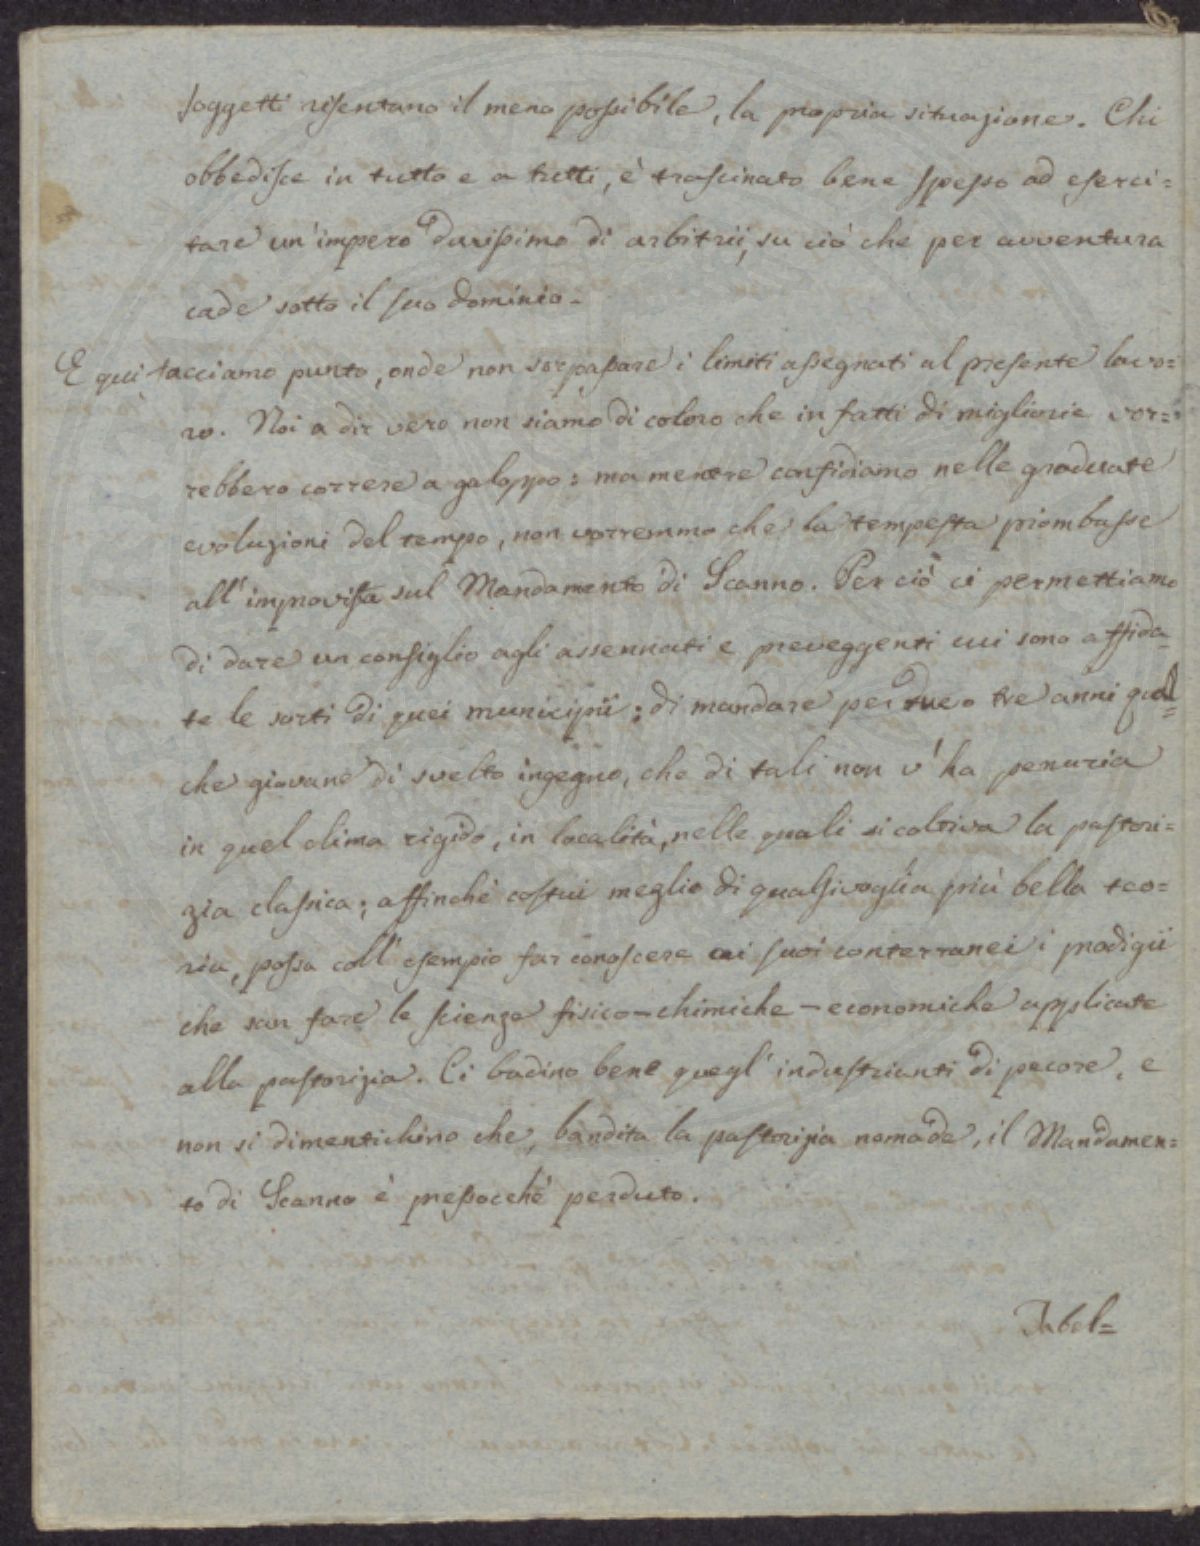 soggetti risentano il meno possibile, la propria situazione. Chi
obbedisce in tutto e a tutti, è trascinato bene spesso ad eserci=
tare un'impero durissimo di arbitrii, su ciò che per avventura
cade sotto il suo dominio.
E qui facciamo punto, onde non sorpassare i limiti assegnati al presente lavo=
ro. Noi a dir vero non siamo di coloro che in fatti di migliorie vor=
rebbero correre a galoppo: ma mentre confidiamo nelle graduate
evoluzioni del tempo, non vorremmo che la tempesta piombasse
all'improvista sul Mandamento di Scanno. Per ciò ci permettiamo
di dare un consiglio agli assennati e preveggenti cui sono affida=
te le sorti di quei municipii: di mandare per due o tre anni qual=
che giovane di svelto ingegno, che di tali non v'ha penuria
in quel clima rigido, in località, nelle quali si coltiva la pastori=
zia classica; affinchè costui meglio di qualsivoglia più bella teo=
ria, possa coll'esempio far conoscere ai suoi conterranei i prodigii
che san fare le scienze fisico-chimiche-economiche applicate
alla pastorizia. Ci badino bene quegl'industrianti di pecore, e
non si dimentichino che, bandita la pastorizia nomade, il Mandamen=
to di Scanno è pressocchè perduto.
Tabel=